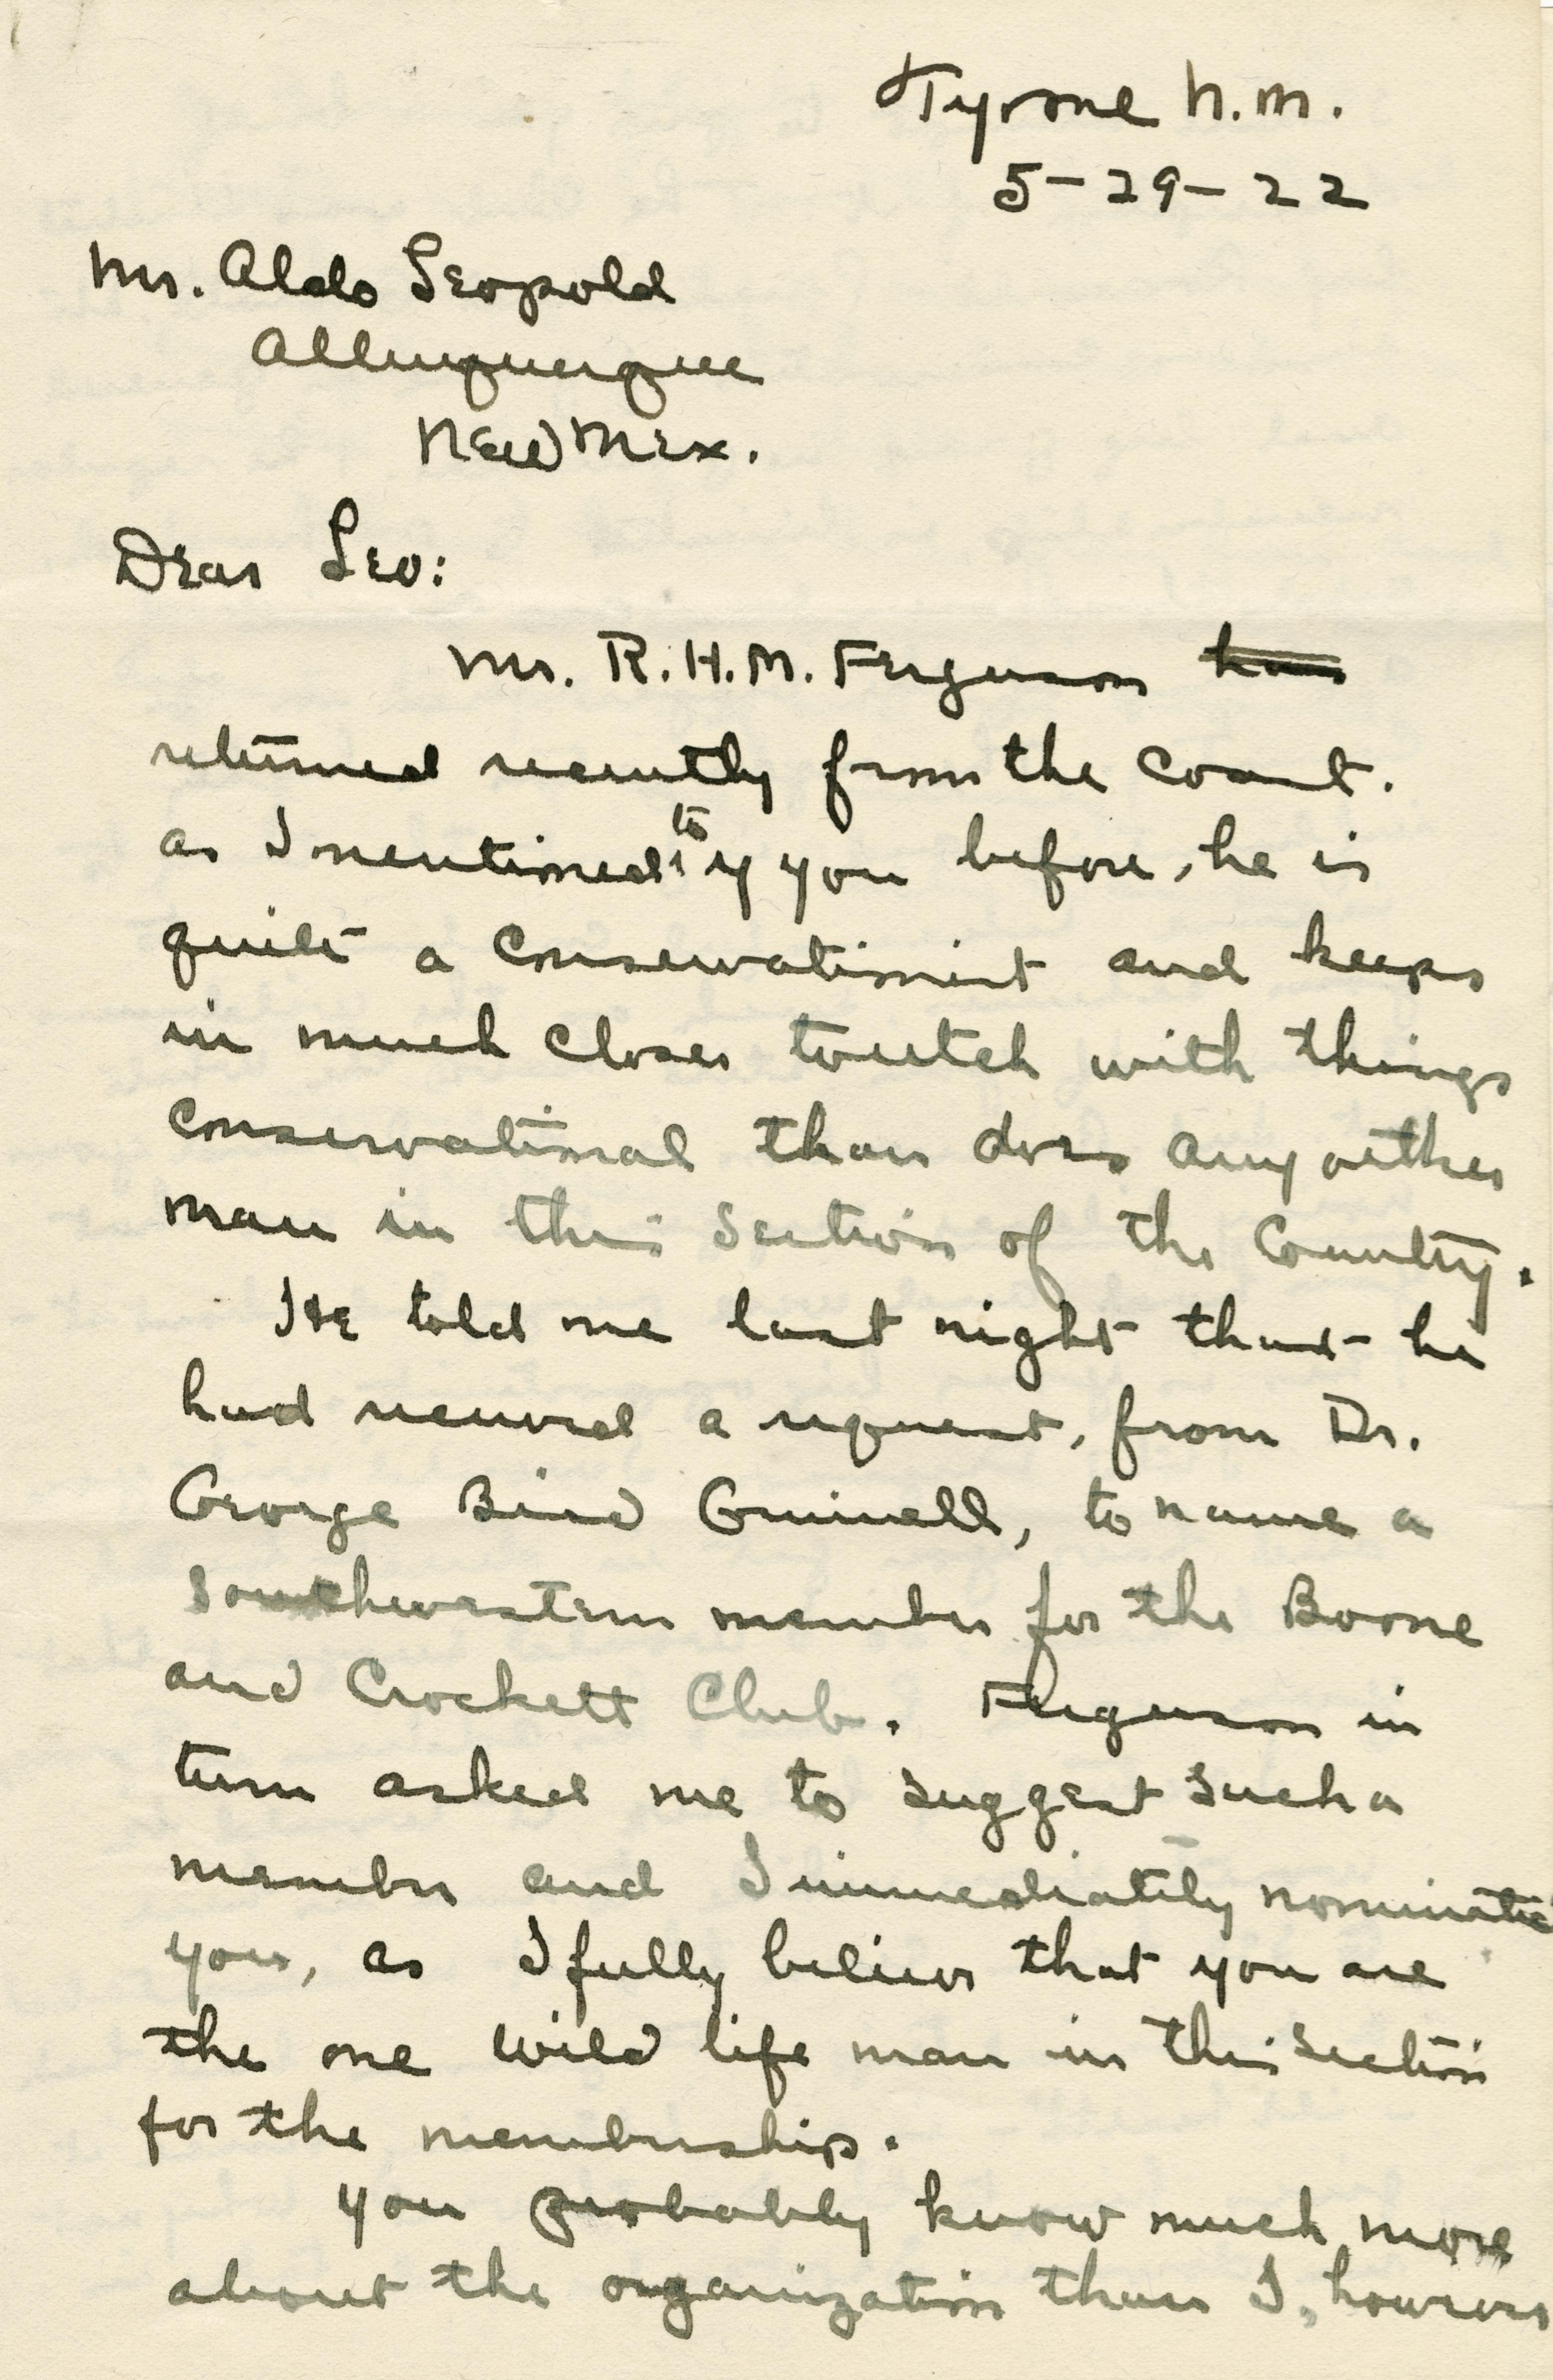 Tyrone N.M.
5-29-22
Mr. Aldo Leopold
Albuquerque
New Mex.
Dear Leo:
Mr. R.H.M. Ferguson has
returned recently from the coast.
as I mentioned to y you before, he is
quite a conservationist and keeps
in much closer toutch with things
conservational than does any outher
man in this section of the Country.
He told me last night that he
had received a request, from Dr.
George Bird Grinnell, to name a
southwestern member for the Boone
and Crockett Club. Ferguson in
turn asked me to suggest such a
member and I immediately nominated
you, as I fully believe that you are
the one wild life man in this section
for the membership.
you probably know much more
about the organization than I, however